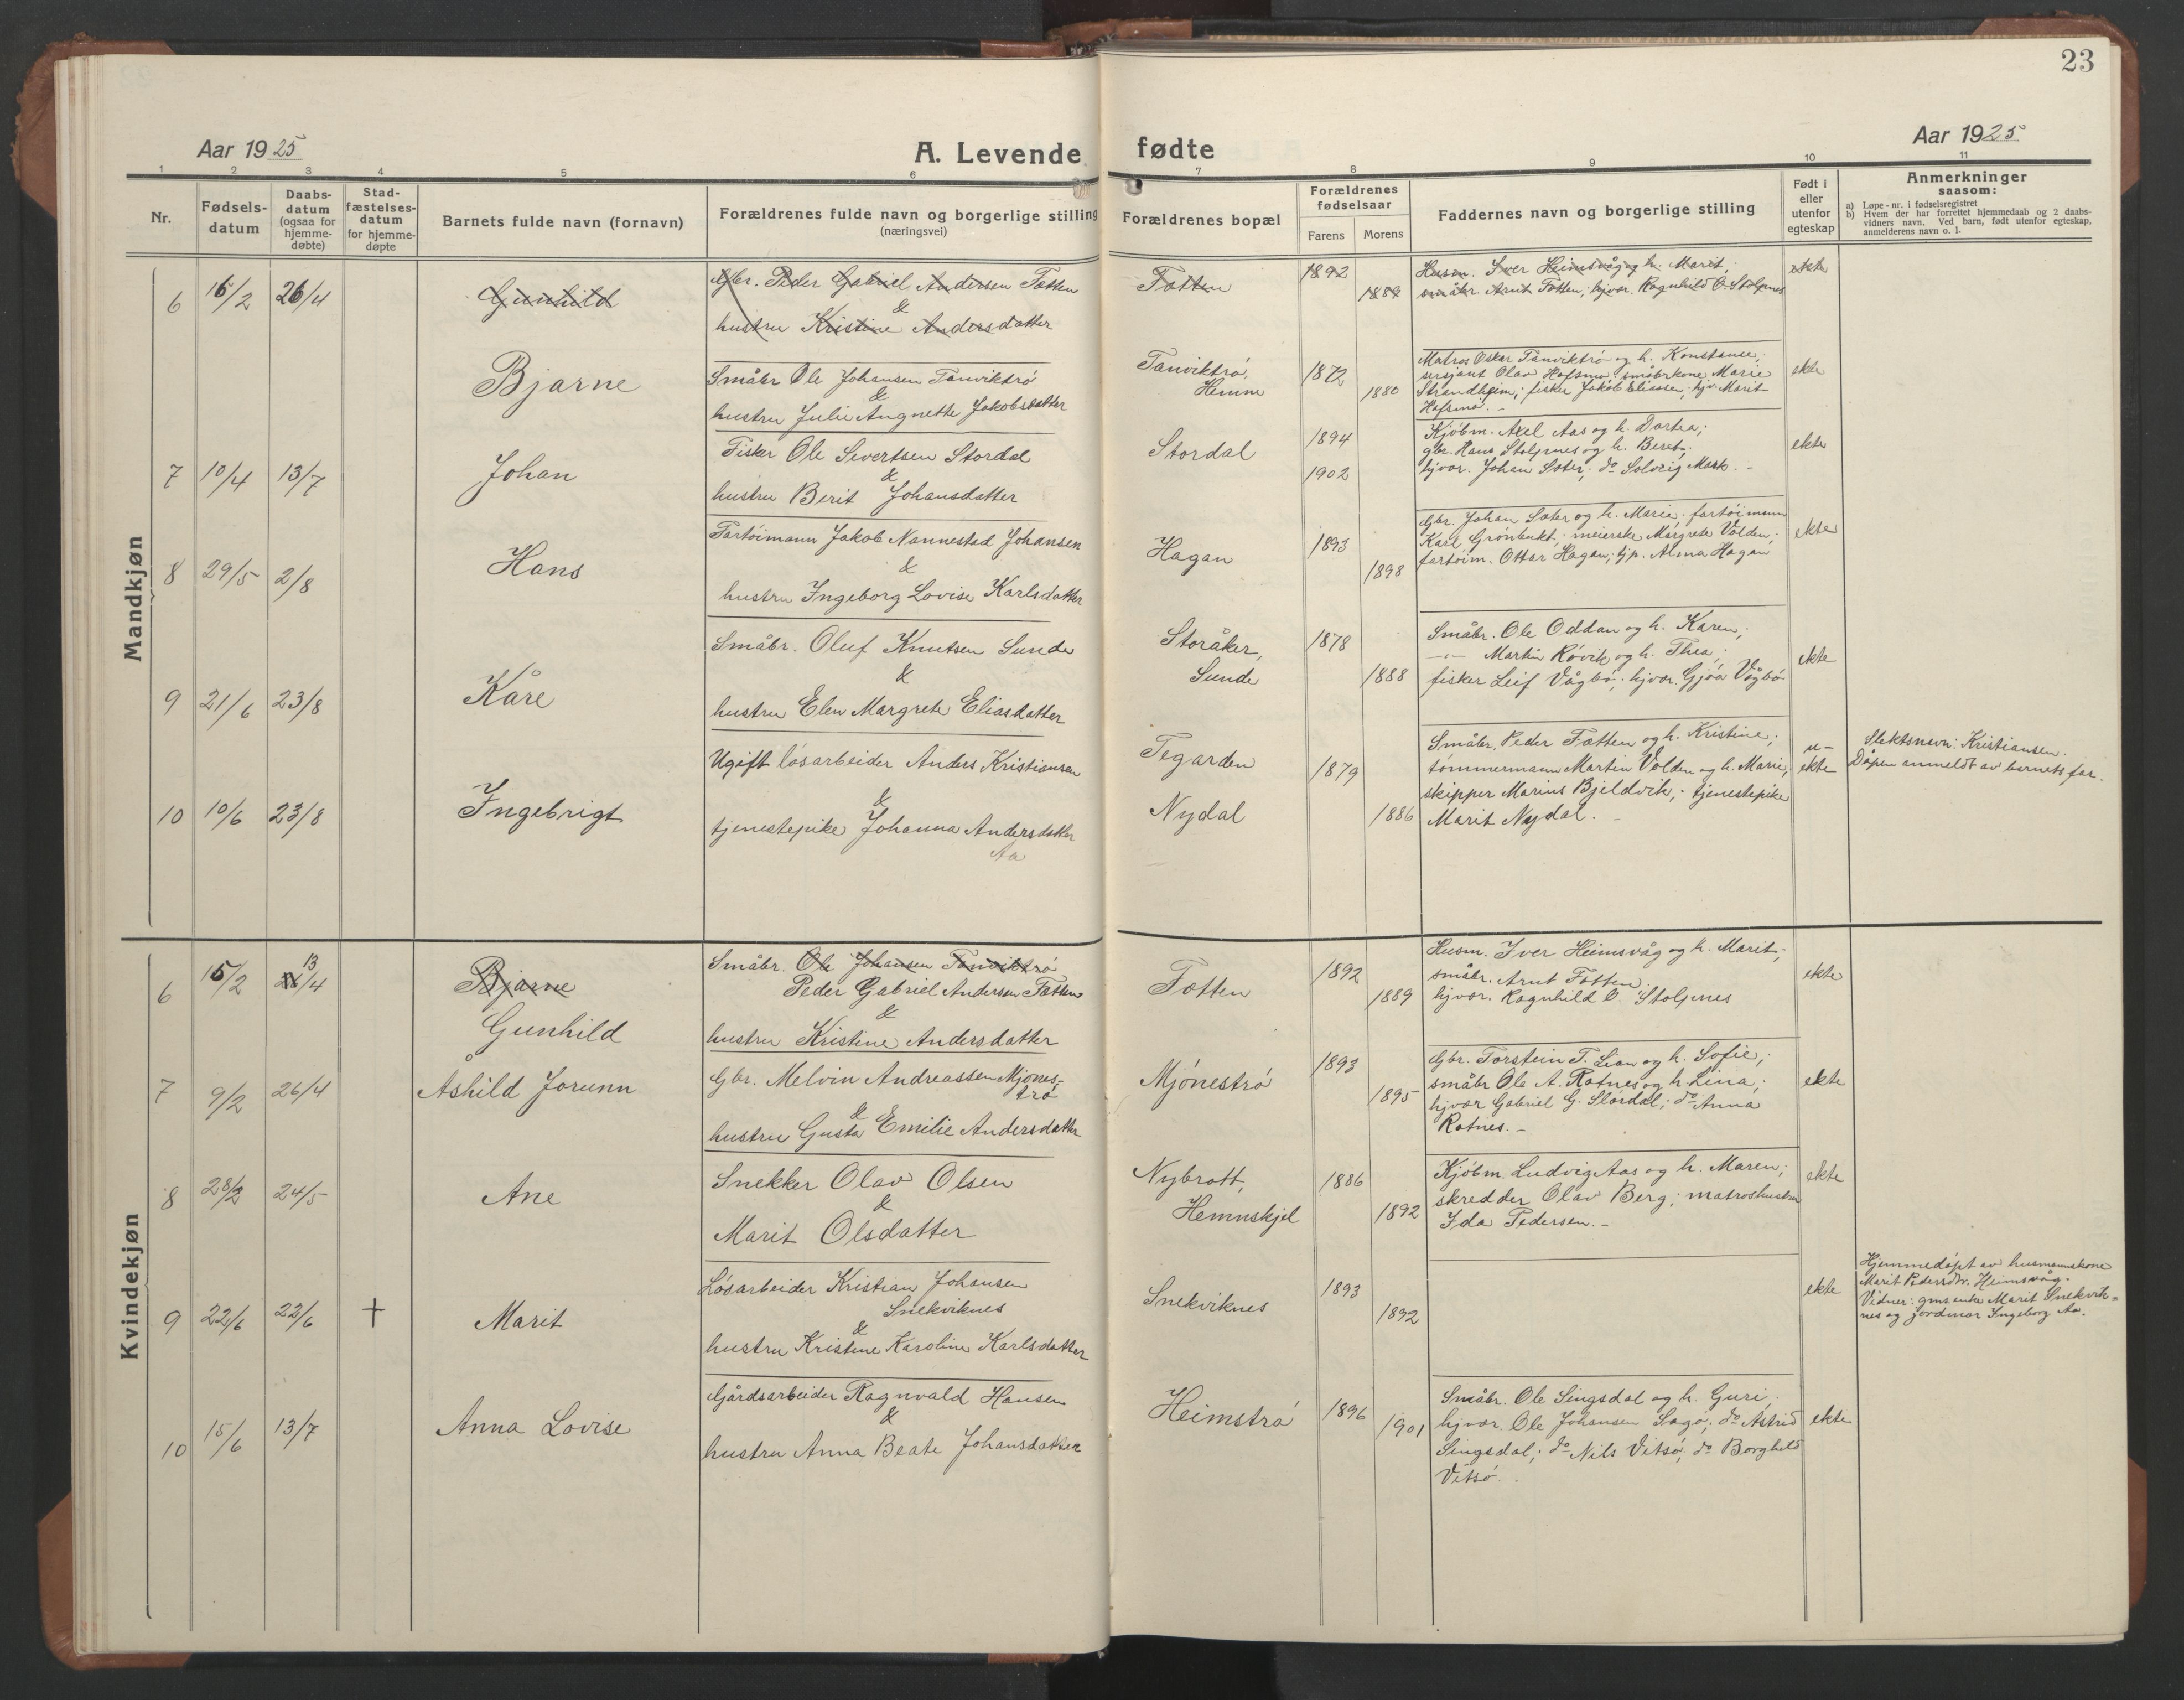 23
Aar 1925
A. Levende fødte
Aar 1925
1 2 3 4 5 6 7 8 9 10 11
Nr.
Fødsels-
datum
Daabs-
datum
(ogsaa for
hjemme-
døbte)
Stad-
fæstelses-
datum
for hjemme-
døpte
Barnets fulde navn (fornavn)
Forældrenes fulde navn og borgerlige stilling
(næringsvei)
Forældrenes bopæl
Forældrenes
fødselsaar
Farens Morens
Faddernes navn og borgerlige stilling
Født i
eller
utenfor
egteskap
Anmerkninger
saasom:
a) Løpe-nr. i fødselsregistret
b) Hvem der har forrettet hjemmedaab og 2 daabs-
vidners navn. Ved barn, født utenfor egteskap,
anmelderens navn o. l.
Mandkjøn
6 15/2 26/4
Gunhild
Gbr. Peder Gabriel Andersen Tøtten
&
hustru Kristine Andersdatter
Tøtten
1892
1889
Husm. Iver Heimsvåg og h. Marit;
småbr. Arnt Tøtten; hjvær. Ragnhild O. Stolpnes
ekte
Bjarne
Småbr Ole Johansen Tanviktrø
&
hustru Julie Angnette Jakobsdatter
Tanviktrø,
Hemne
1872
1880
Matros Oskar Tanviktrø og h. Konstanse;
sersjant Olav Hofsmo; småbrkone Marie
Strandheim; fisker Jakob Eliassen; hjv. Marit
Hofsmo. -
ekte
7 10/4 13/7
Johan
Fisker Ole Sivertsen Stordal
&
hustru Berit Johansdatter
Stordal
1894
1902
Kjøbm. Axel Aas og h. Dortea;
gbr. Hans Stolpnes og h. Beret;
hjvær. Johan Sæter; do Solveig Mærk. -
ekte
8 29/5 2/8
Hans
Fartøimann Jakob Nannestad Johansen
&
hustru Ingeborg Lovise Karlsdatter
Hagan
1893
1898
Gbr. Johan Sæter og h. Marie; fartøimann
Karl Grønbukt; meierske Margrete Volden;
fartøim. Ottar Hagan; tjp. Alma Hagan
ekte
9 21/6 23/8
Kåre
Småbr. Oluf Knutsen Sunde
&
hustru Elen Margrete Eliasdatter
Storåker,
Sunde
1878
1888
Småbr. Ole Oddan og h. Karen;
-"- Martin Røvik og h. Thea;
fisker Leif Vågbø; hjvær. Gjøa Vågbø
ekte
10 10/6 23/8
Ingebrigt
Ugift løsarbeider Anders Kristiansen
&
tjenestepike Johanna Andersdatter
Aa
Tegarden
Nydal
1879
1886
Småbr. Peder Tøtten og h. Kristine;
tømmermann Martin Volden og h. Marie;
skipper Marius Bjeldvik; tjenestepike
Marit Nydal. -
u-
ekte
Slektsnavn: Kristiansen.
Dåpen anmeldt av barnets far.
Kvindekjøn
6 15/2 13/4
Bjarne
Gunhild
Småbr. Ole Johansen Tanviktrø
Peder Gabriel Andersen Tøtten
&
hustru Kristine Andersdatter
Tøtten
1892
1889
Husm. Iver Heimsvåg og h. Marit;
småbr. Arnt Tøtten;
hjvær. Ragnhild O. Stolpnes
ekte
7 9/2 26/4
Åshild Jorunn
Gbr. Melvin Andreassen Mjønes-
trø
&
hustru Gusta Emilie Andersdatter
Mjønestrø
1893
1895
Gbr. Torstein T. Lian og h. Sofie;
småbr Ole A. Rotnes og h. Lina;
hjvær Gabriel G. Slørdal; do Anna
Rotnes. -
ekte
8 28/2 24/5
Ane
Snekker Olav Olsen
&
Marit Olsdatter
Nybrott,
Hemnskjel
1886
1892
Kjøbm. Ludvig Aas og h. Maren;
skredder Olav Berg; matroshustru
Ida Pedersen. -
ekte
9 22/6 22/6 †
Marit
Løsarbeider Kristian Johansen
Snekviknes
&
hustru Kristine Karoline Karlsdatter
Snekviknes
1893
1892
ekte
Hjemmedøpt av husmannskone
Marit Pedersdtr. Heimsvåg.
Vidner: gms.enke Marit Snekvik=
nes og jordmor Ingeborg Aa.
10 15/6 13/7
Anna Lovise
Gårdsarbeider Ragnvald Hansen
&
hustru Anna Beate Johansdatter
Heimstrø
1896
1901
Småbr. Ole Singsdal og h. Guri;
hjvær. Ole Johansen Sagø; do Astrid
Singsdal; do Nils Vitsø; do Borghild
Vitsø. -
ekte